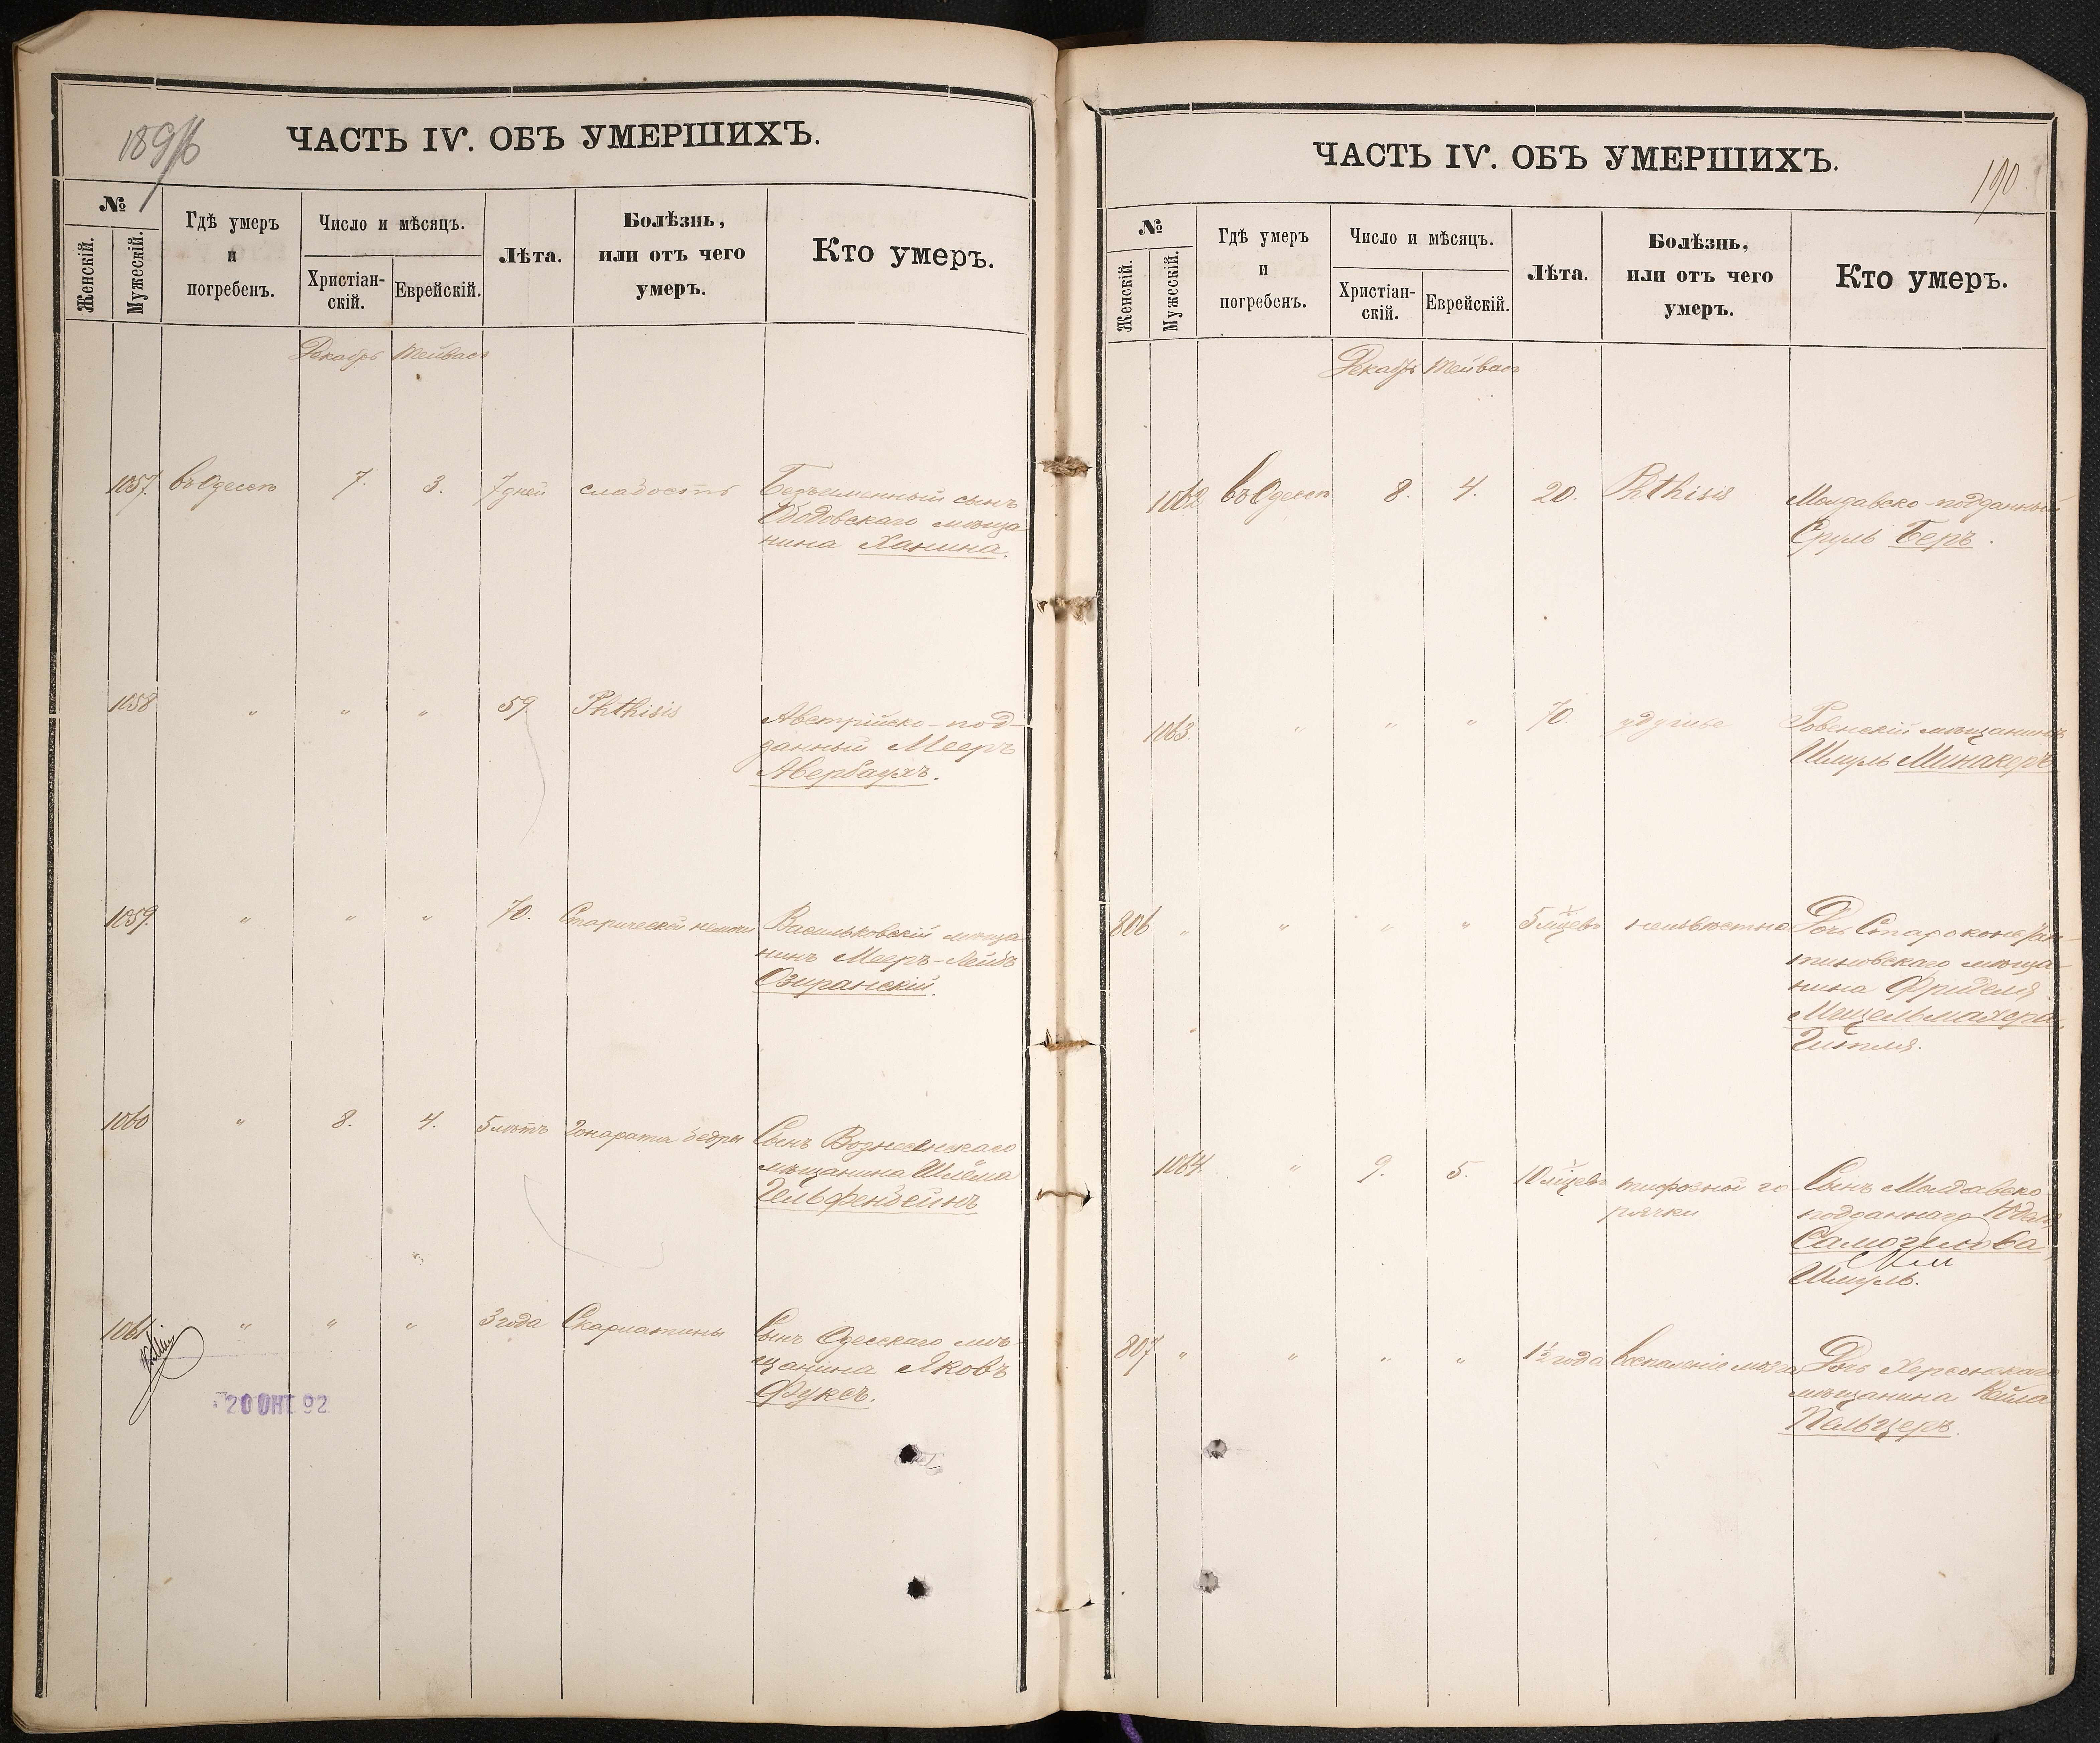 189/б
ЧАСТЬ IV. ОБЪ УМЕРШИХЪ.
№
Женскій.
Мужескій.
Гдѣ умеръ
и
погребенъ.
Число и мѣсяцъ.
Христіан-
скій.
Еврейскій.
Лѣта.
Болѣзнь,
или отъ чего
умеръ.
Кто умеръ.
Декабрь Тейвасъ
1057. въ Одессѣ 7. 3. 7 дней слабость Безъименный сынъ
Ободовскаго мѣща
нина Ханина.
1058 " " " 59. Phthisis Австрійско-под-
данный Мееръ
Авербаухъ.
1059. " " " 70. Старческой немочи Васильковскій мѣща
нинъ Мееръ-Лейбъ
Озиранскій.
1060 " 8. 4. 5 лѣтъ бедры Сынъ Вознесенскаго
мѣщанина Шлёма
Гельфенбейнъ
1061 " " " 3 года Скарлатины Сынъ Одесскаго мѣ-
щанина Яковъ
Фуксъ.
20 ОКТ 92
ЧАСТЬ IV. ОБЪ УМЕРШИХЪ.
190.
№
Женскій.
Мужескій.
Гдѣ умеръ
и
погребенъ.
Число и мѣсяцъ.
Христіан-
скій.
Еврейскій.
Лѣта.
Болѣзнь,
или отъ чего
умеръ.
Кто умеръ.
Декабрь Тейвасъ
1062 въ Одессѣ 8. 4. 20. Phthisis Молдавско-подданный
Сруль Беръ.
1063. " " " 70. удушье Ровенскій мѣщанинъ
Шмуль Минакеръ
806 " " " " 5 мѣцевъ неизвѣстна Дочь Староконстан-
тиновскаго мѣща-
нина Фриделя
Мецельмахера,
Гитля.
1064 " 9. 5. 10 мѣцевъ тифозной го- Сынъ Молдавско-
рячки подданнаго
Шмуль.
807 " " " " 1½ года воспаленіе мозга Дочь Херсонскаго
мѣщанина Кейла
Пельцеръ.